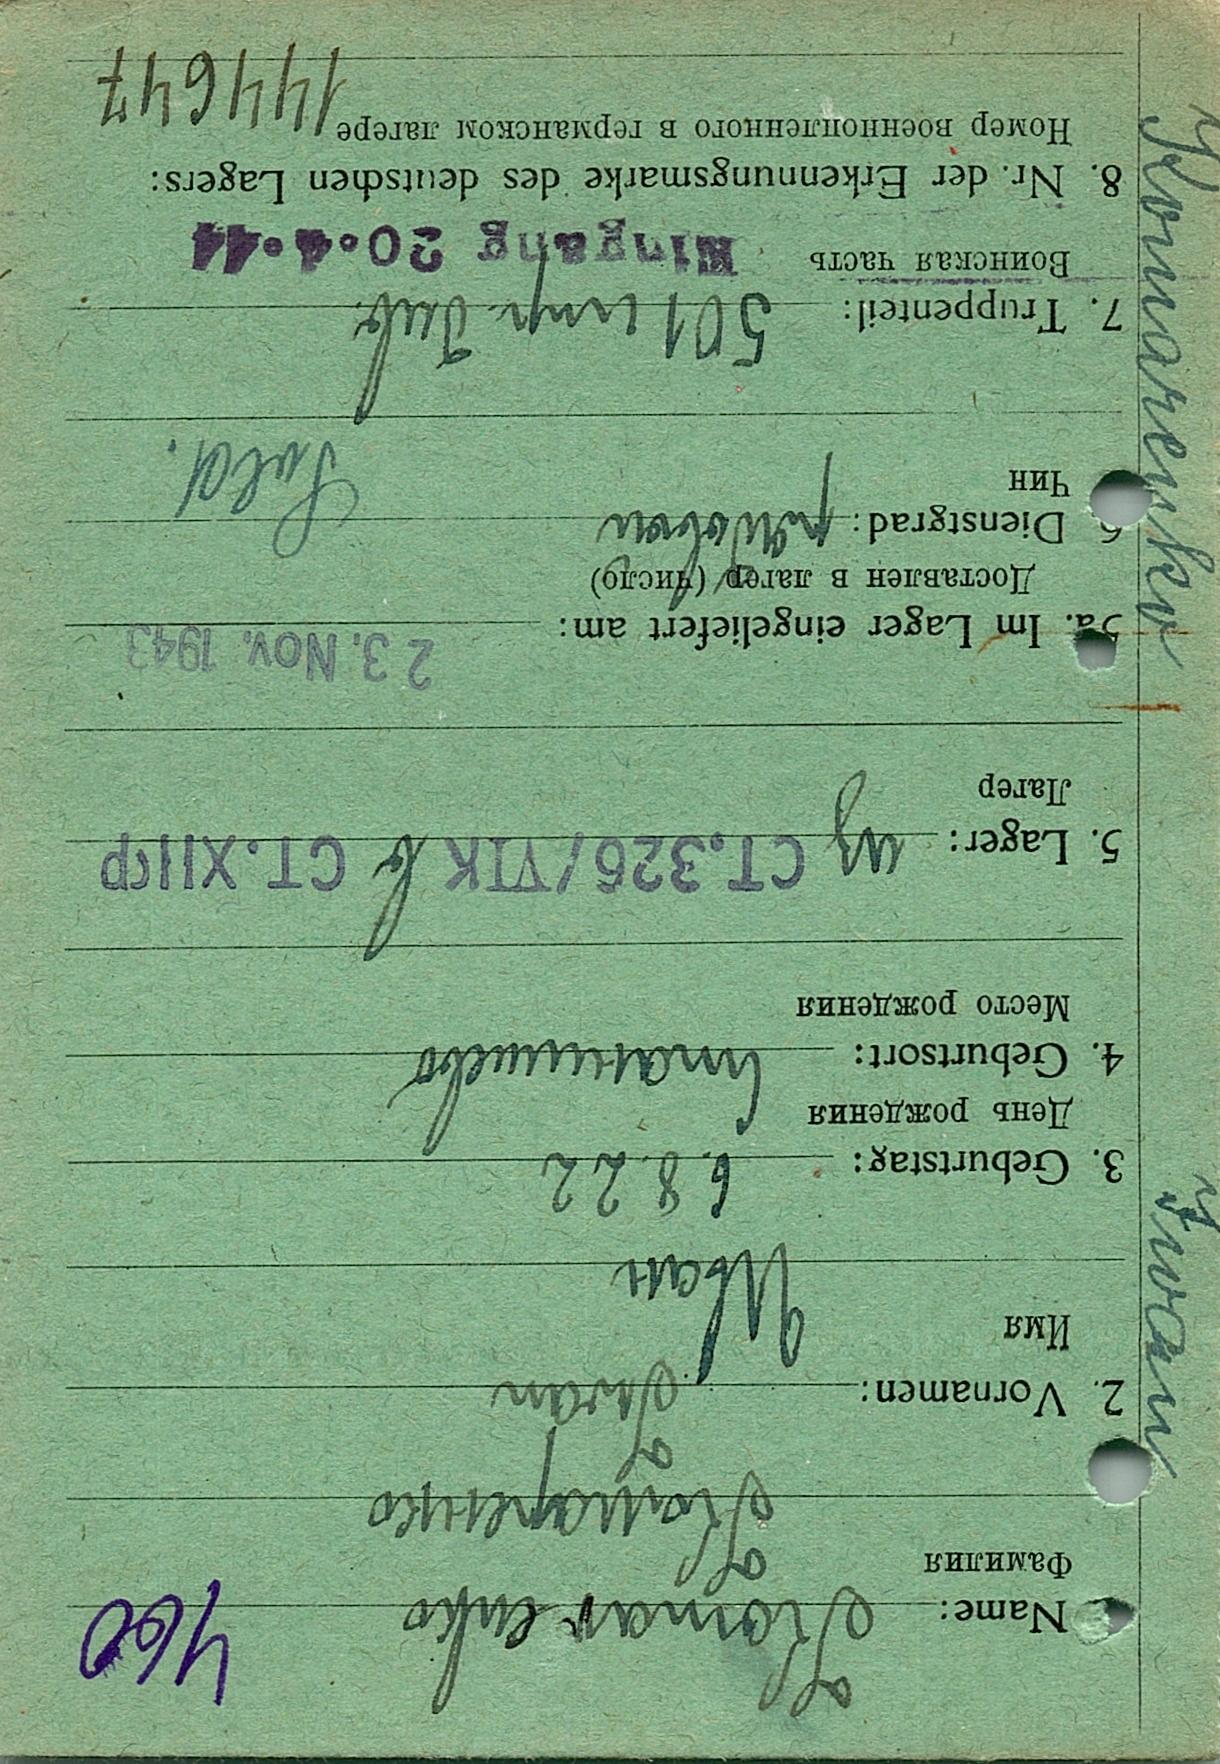 Komarenko Iwan
460
1. Name: Komarenko
Фамилия
Комаренко
2. Vornamen: Iwan
Имя
Иван
3. Geburtstag: 6.8.22
День рождения
4. Geburtsort:
Место рождения
5. Lager: из СТ.326/VIK в СТ. XIIГР
Лагер
5a. Im Lager eingeliefert am: 23. Nov. 1943
Доставлен в лагер (число)
6 Dienstgrad: рядовой Sold.
Чин
7. Truppenteil: 501
Воинская часть Eingang 20.4.44
8. Nr. der Erkennungsmarke des deutschen Lagers:
Номер военнопленного в германском лагере 144647